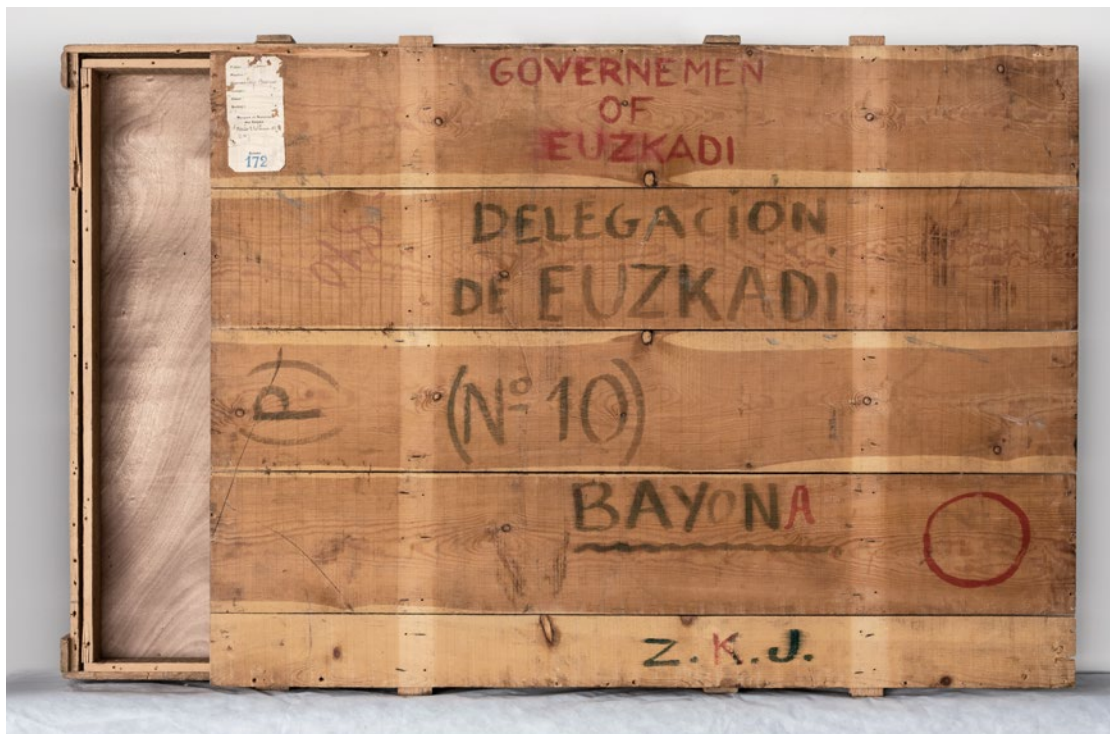 GOVERNEMEN
OF
EUZKADI
172
DELEGACION
DE EUZKADI
(P)
(Nº 10)
BAYONA
Z.K.J.